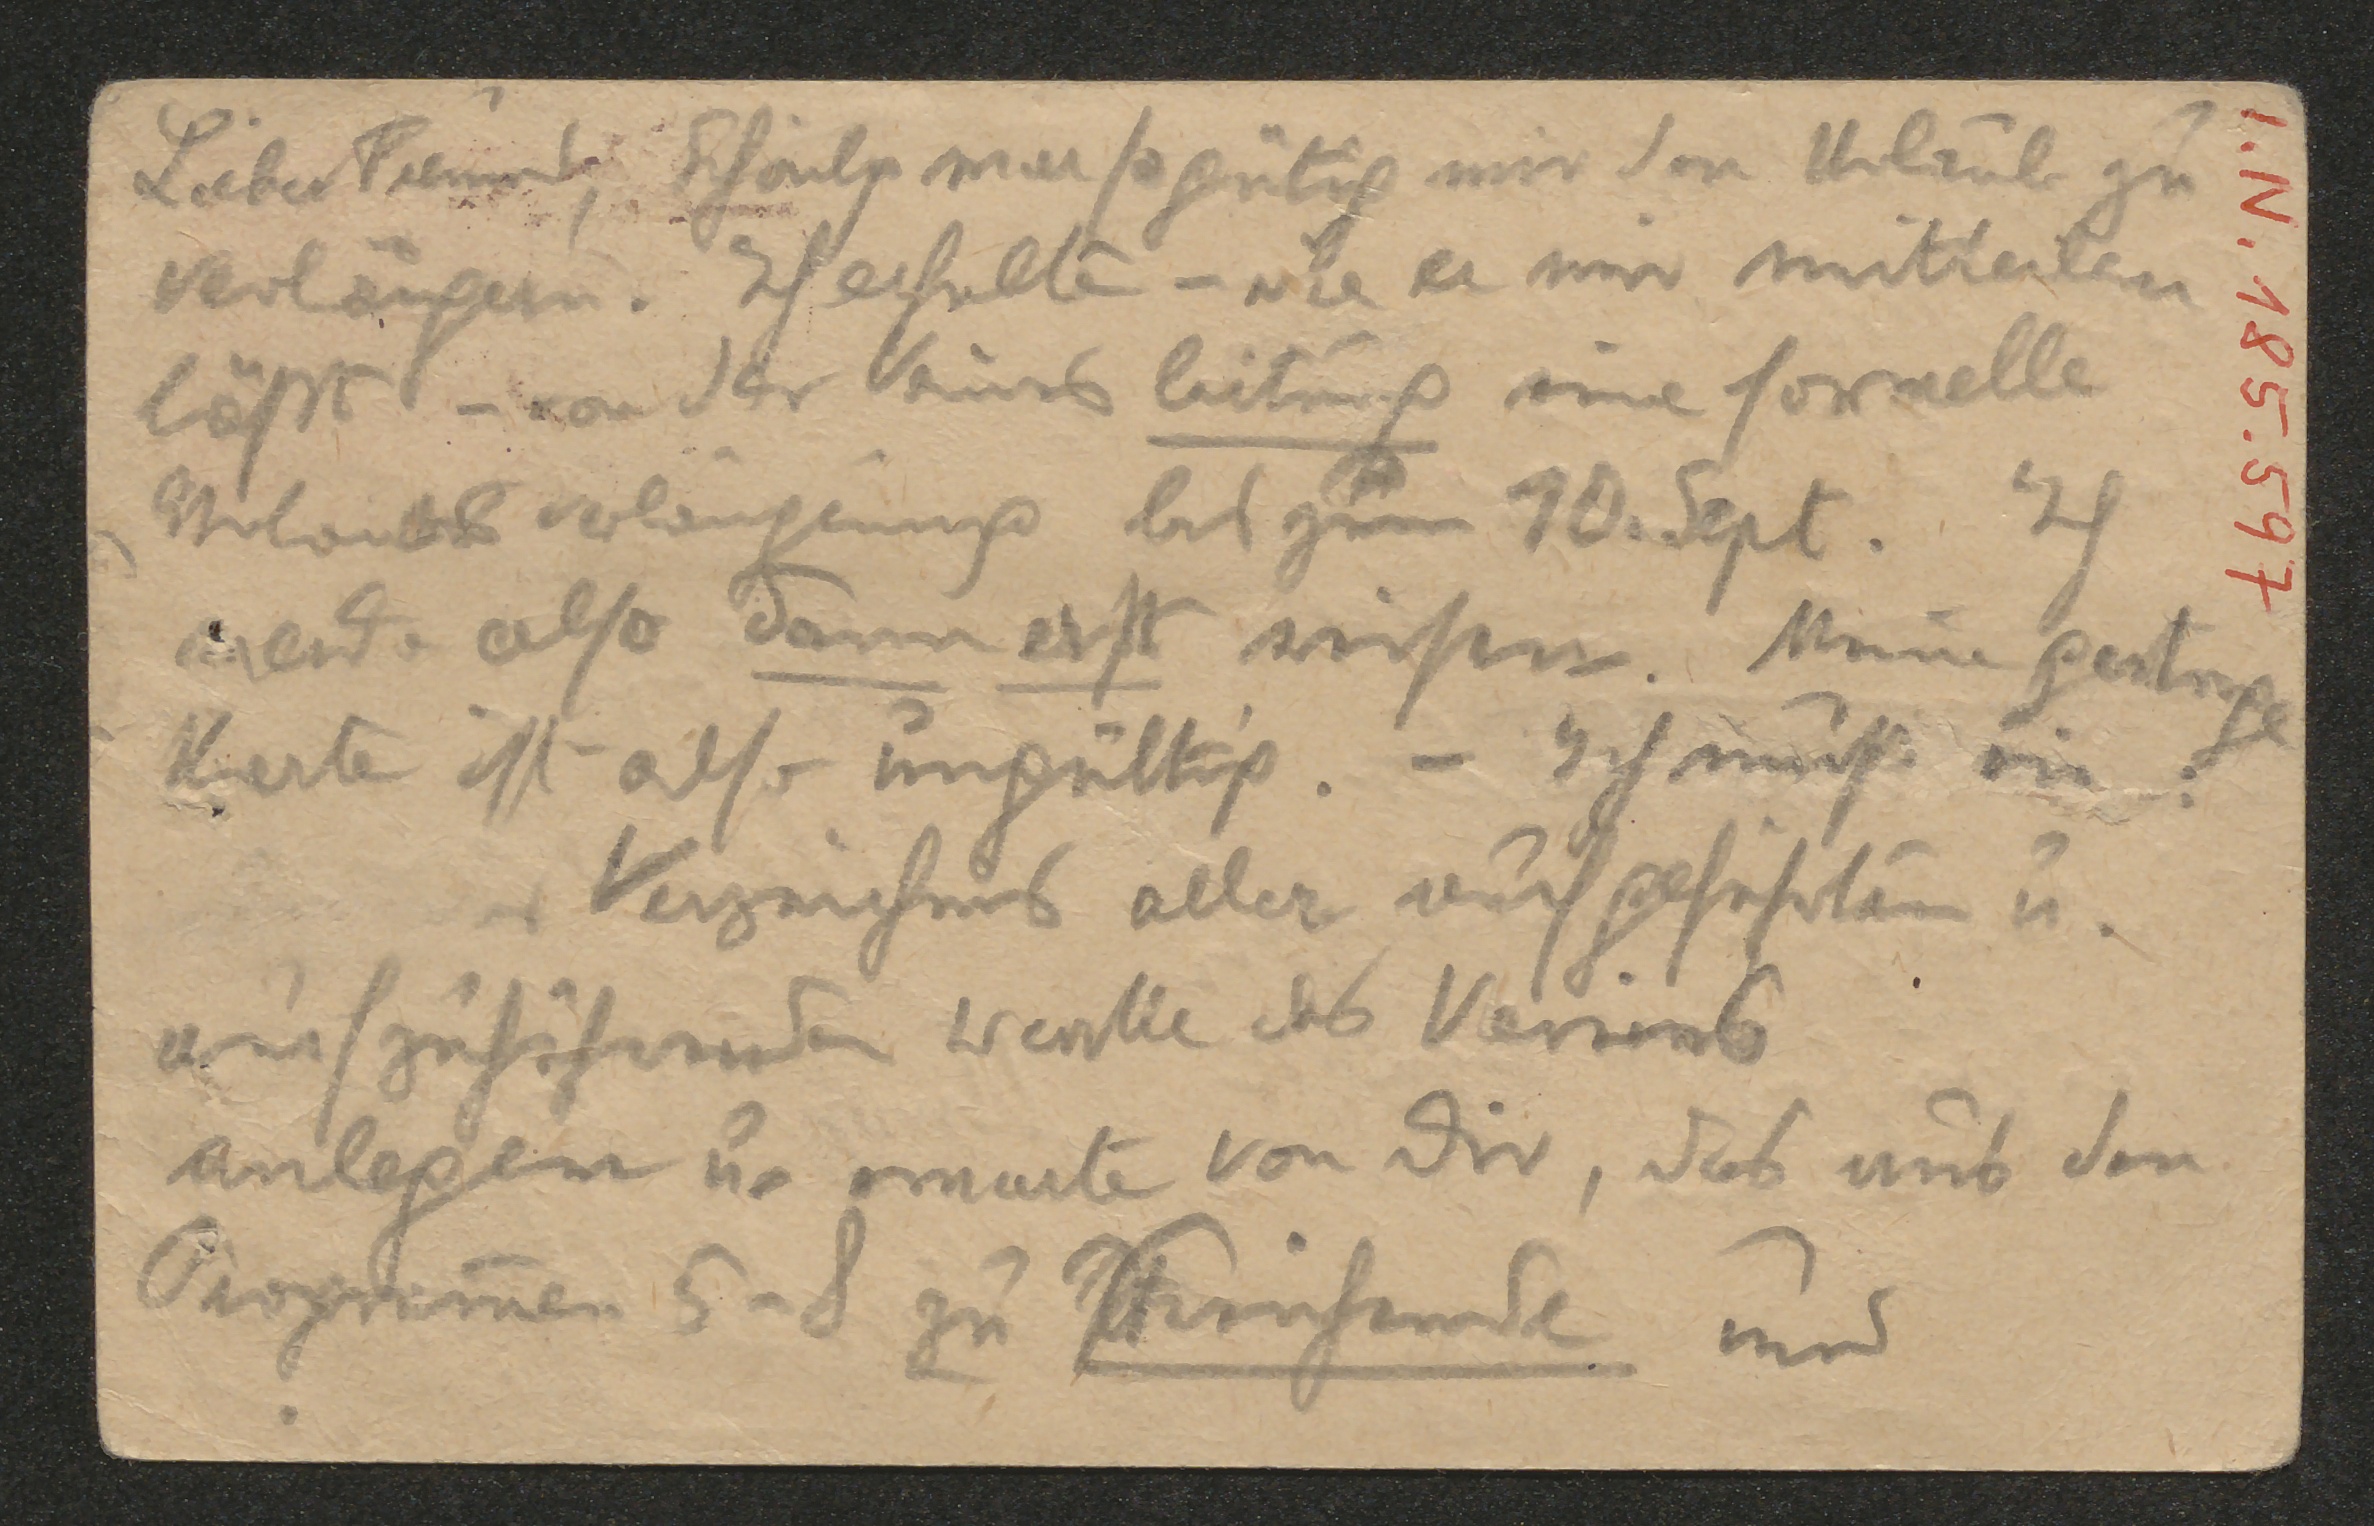 Lieber Freund, Schönbg war so gütig mir den Urlaub zu
verlängern. Ich erhalte – wie er mir mitteilen
läßt – von der Vereinsleitung eine formelle
Urlaubsverlängerung bis zum 10. Sept. Ich
werde also dann erst wissen. Meine gestrige
Karte ist also ungültig. – Ich muß ein
Verzeichnis aller aufgeführten u.
aufzuführenden Werke des Vereins
anlegen u. erwarte von Dir, das aus den
Programmen 5–8 zu Streichende und
I.N. 185.597